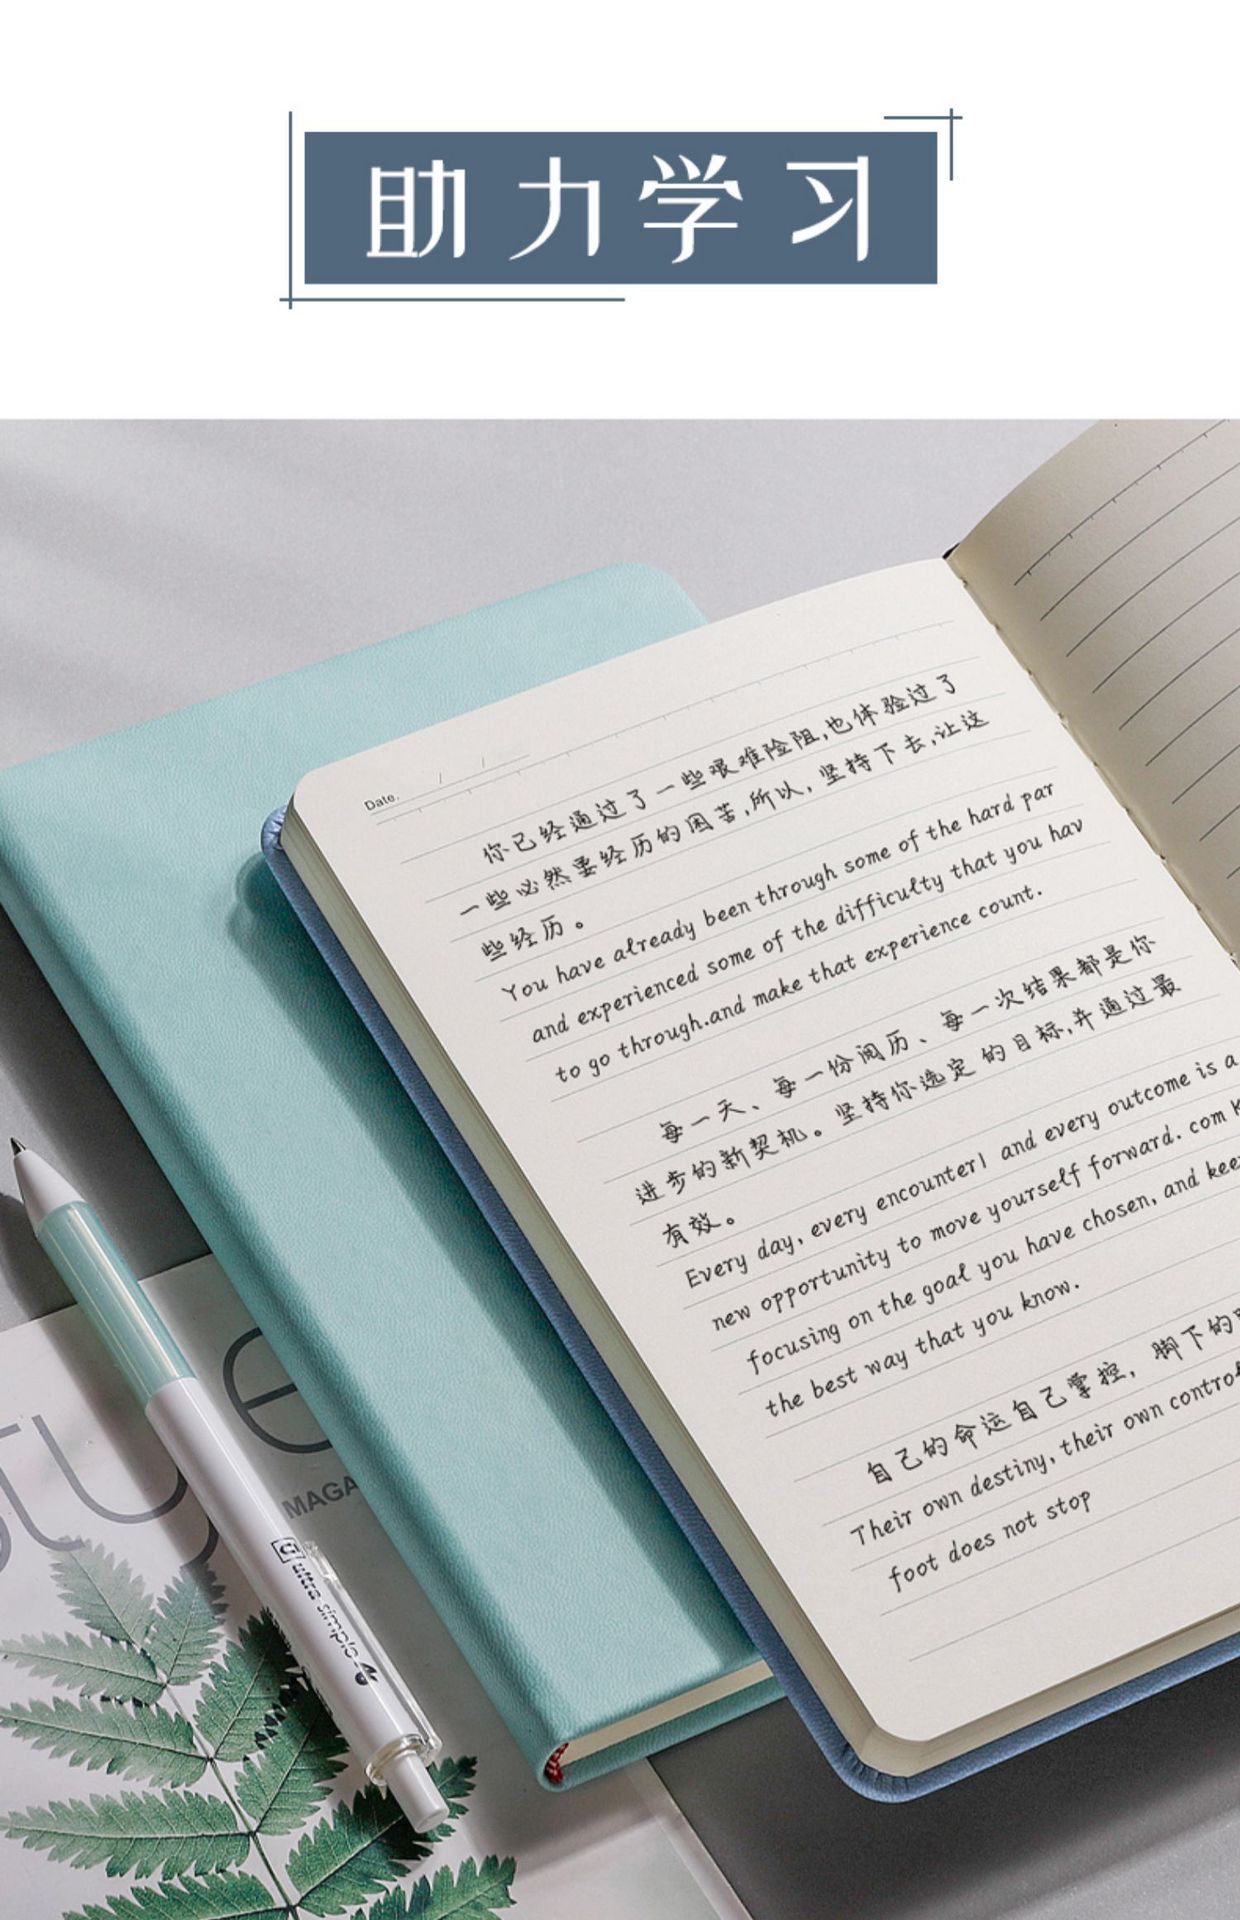 助力学习
Date.
你已经通过了一些艰难险阻,也体验过了
一些必然要经历的困苦,所以,坚持下去,让这
些经历。
You have already been through some of the hard par
and experienced some of the difficulty that you hav
to go through.and make that experience count.
每一天、每一份阅历、每一次结果都是你
进步的新契机。坚持你选定的目标,并通过最
有效。
Every day, every encounterl and every outcome is a
new opportunity to move yourself forward. com k
focusing on the goal you have chosen, and kee
the best way that you know.
自己的命运自己掌控, 脚下的
Their own destiny, their own control
foot does not stop
MAGA
ultra·simple